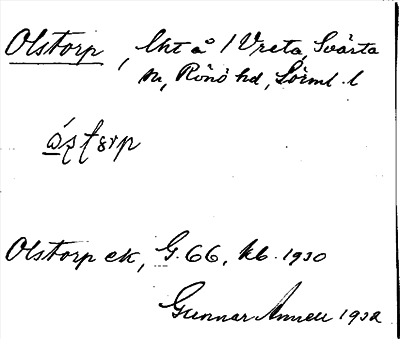 Olstorp, lht å 1 Vreta, Svärta
sn, Rönö hd, Sörml. l
Olstorp ek, G. 66, kb. 1930
Gunnar Anneu 1932